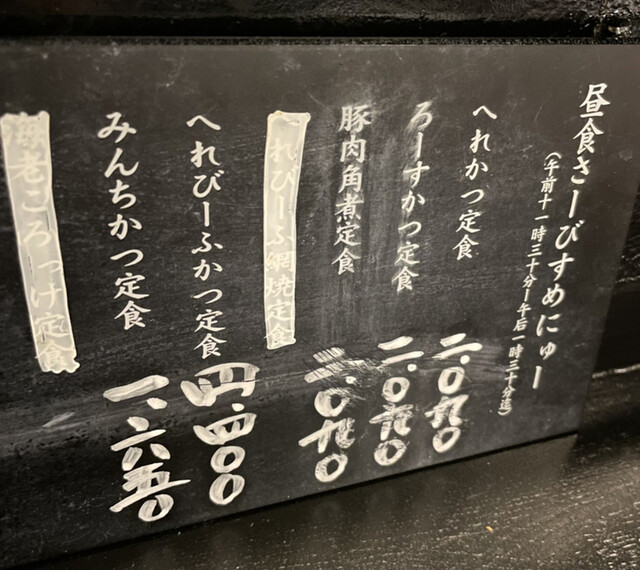 昼食さーびすめにゅー
(午前十一時三十分ー午后一時三十分迄)
へれかつ定食
二.〇九〇
ろーすかつ定食
二.〇九〇
豚肉角煮定食
二.〇九〇
へれびーふ網焼定食
へれびーふかつ定食
四.四〇〇
みんちかつ定食
一.六五〇
海老ころっけ定食